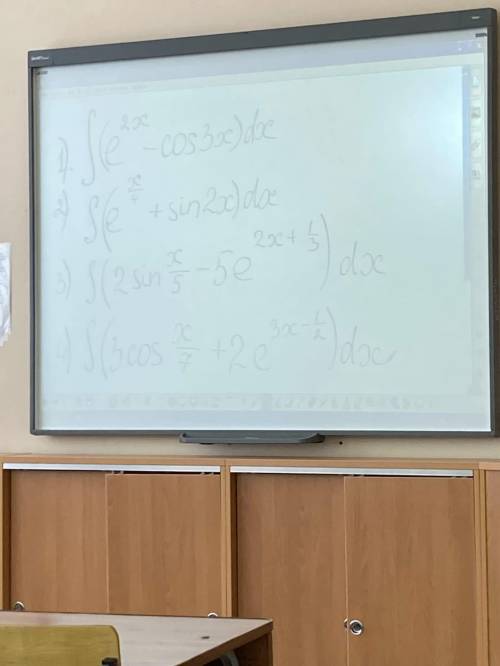 1) ∫(e^{2x} - cos3x)dx
2) ∫(e^{x/4} + sin2x)dx
3) ∫(2sin x/5 - 5e^{2x + 1/3})dx
4) ∫(3cos x/7 + 2e^{3x - 1/2})dx